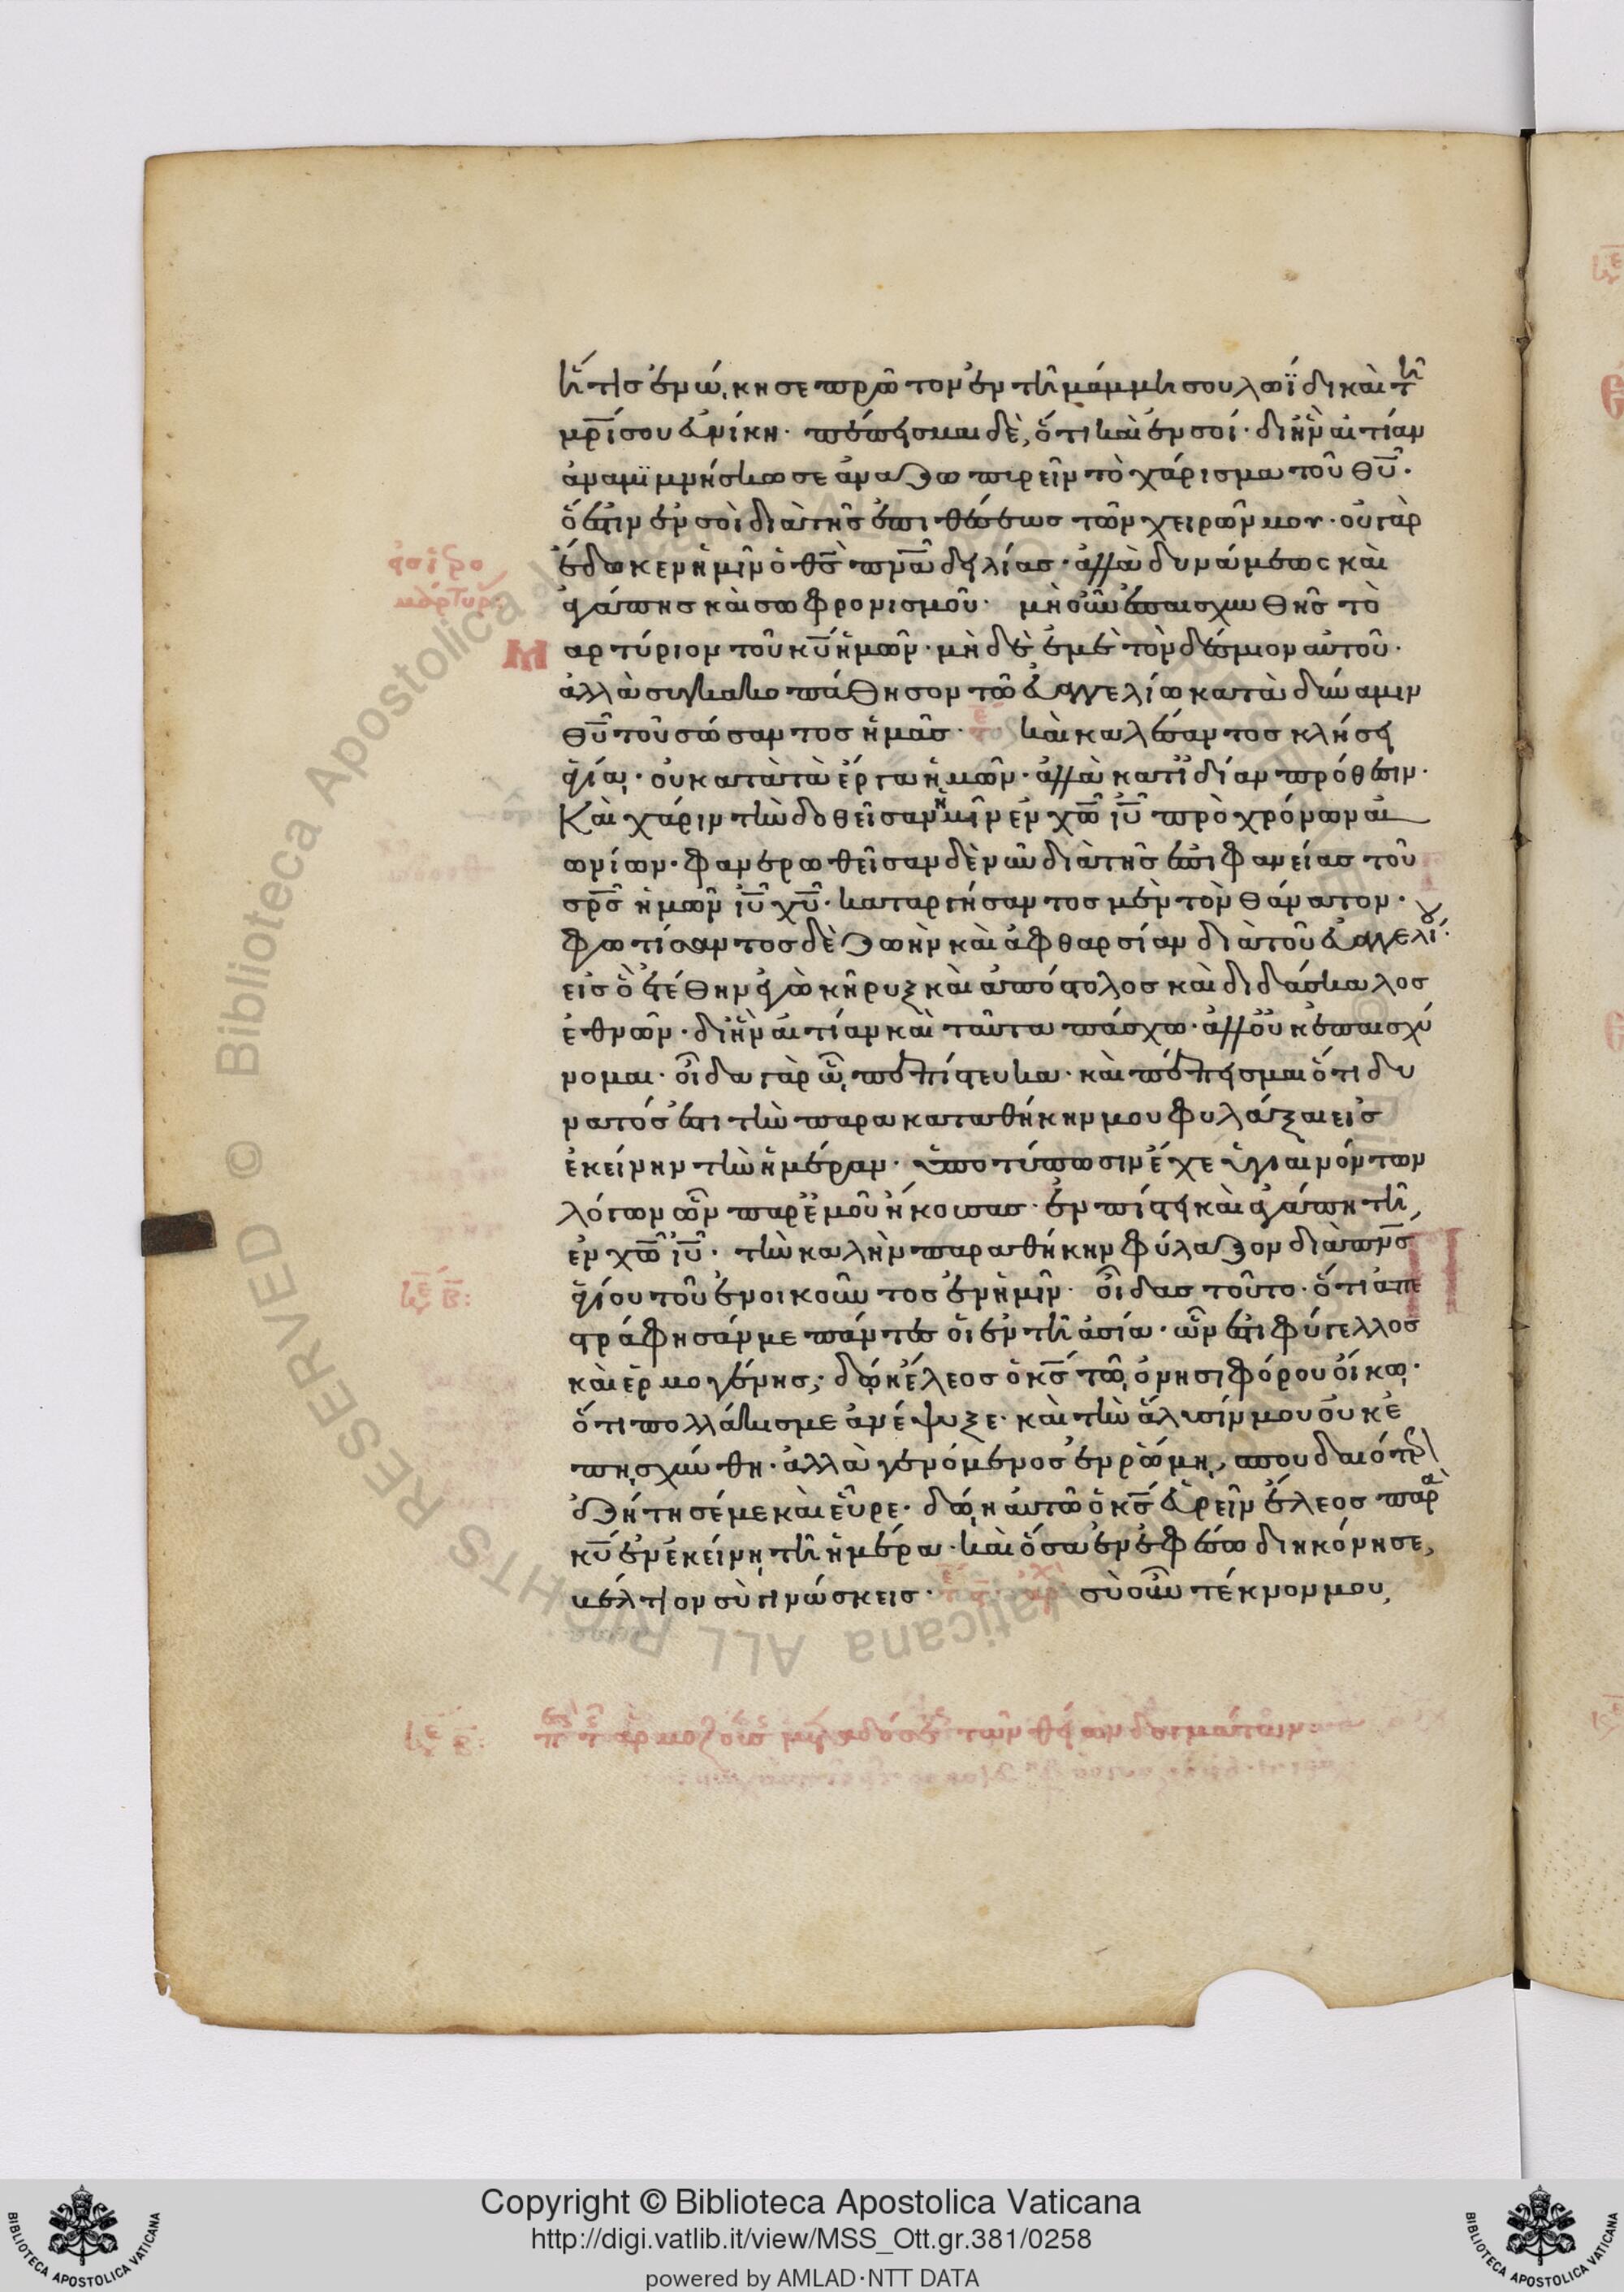 ἥτις ἐνώκησε πρῶτον ἐν τῆ μάμμη σου λωΐδι καὶ τῆ
μρ̅ί σου εὐνίκη· πέπεισμαι δὲ, ὅτι καὶ ἐν σοί· δι' ἣν αἰτίαν
ἀναμιμνήσκω σε ἀναζωπυρεῖν τὸ χάρισμα τοῦ θυ̅·
ὅ ἐστιν ἐν σοὶ διὰ τῆς ἐπιθέσεως τῶν χειρῶν μου· οὐ γὰρ
ἔδωκεν ἡμῖν ὁ θς̅ πνα̅ δειλίας· ἀλλὰ δυνάμεως καὶ
ἀγάπης καὶ σωφρονισμοῦ· μὴ οὖν ἐπαισχυνθῆς τὸ
Μαρτύριον τοῦ κυ̅ ἡμῶν· μὴ δὲ ἐμὲ τὸν δέσμιον αὐτοῦ·
ἀλλὰ συγκακοπάθησον τῶ εὐαγγελίω κατὰ δύναμιν
θυ̅ τοῦ σώσαντος ἡμᾶς· καὶ καλέσαντος κλήσει
ἁγία· οὐ κατὰ τὰ ἔργα ἡμῶν· ἀλλὰ κατ' ἰδίαν πρόθεσιν·
Καὶ χάριν τὴν δοθεῖσαν ἡμῖν ἐν χω̅ ιυ̅ πρὸ χρόνων αἰ
ωνίων· φανερωθεῖσαν δὲ νῦν διὰ τῆς ἐπιφανείας τοῦ
σρ̅ς ἡμῶν ιυ̅ χυ̅· καταργήσαντος μὲν τὸν θάνατον·
φωτίσαντος δὲ ζωὴν καὶ ἀφθαρσίαν διὰ τοῦ εὐαγγελίου·
εἰς ὃ ἐτέθην ἐγὼ κῆρυξ καὶ ἀπόστολος καὶ διδάσκαλος
ἐθνῶν· δι' ἣν αἰτίαν καὶ ταῦτα πάσχω· ἀλλ' οὐκ ἐπαισχύ
νομαι· οἶδα γὰρ ὧ πεπίστευκα· καὶ πέπεισμαι ὅτι δυ
νατός ἐστι τὴν παρακαταθήκην μου φυλάξαι εἰς
ἐκείνην τὴν ἡμέραν· ὑποτύπωσιν ἔχε ὑγιαινόντων
λόγων ὧν παρ' ἐμοῦ ἤκουσας· ἐν πίστει καὶ ἀγάπη τῆ
ἐν χω̅ ιυ̅· τὴν καλὴν παραθήκην φύλαξον διὰ πνς̅
ἁγίου τοῦ ἐνοικοῦντος ἐν ἡμῖν· οἶδας τοῦτο· ὅτι ἀπε
στράφησάν με πάντες οἱ ἐν τῆ ἀσία· ὧν ἐστι φύγελλος
καὶ ἑρμογένης· δώη ἔλεος ὁ κς̅ τῶ ὀνησιφόρου οἴκω·
ὅτι πολλάκις με ἀνέψυξε· καὶ τὴν ἅλυσίν μου οὐκ ἐ
πησχύνθη· ἀλλὰ γενόμενος ἐν ῥώμη, σπουδαιότερον
ἐζήτησέ με καὶ εὗρε· δώη αὐτῶ ὁ κς̅ εὑρεῖν ἔλεος παρὰ
κυ̅ ἐν ἐκείνη τῆ ἡμέρα· καὶ ὅσα ἐν ἐφέσω διηκόνησε,
βέλτιον σὺ γινώσκεις· σὺ οὖν τέκνον μου,
Copyright © Biblioteca Apostolica Vaticana
http://digi.vatlib.it/view/MSS_Ott.gr.381/0258
powered by AMLAD·NTT DATA